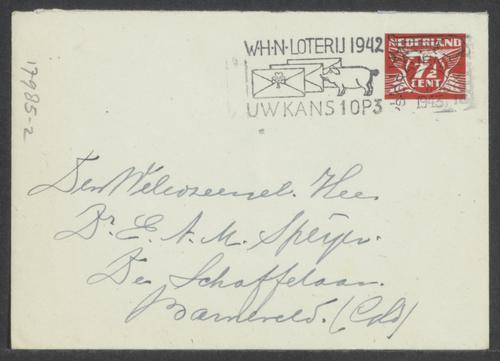 W·H·N·LOTERIJ 1942
UW KANS 1 OP 3
NEDERLAND
7½
CENT
1943
17985-2
Den Weledelzeergel. Heer
Dr. E. A. M. Speijer.
De Schaffelaar
Barneveld. (Gld)